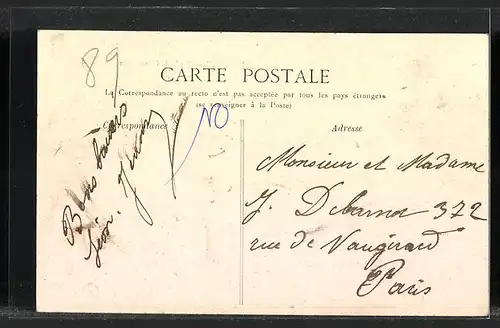 89
CARTE POSTALE
La Correspondance au recto n'est pas acceptée par tous les pays étrangers
(se renseigner à la Poste)
Correspondance
Bons baisers
NO
Adresse
Monsieur et Madame
J. Debarnot 372
rue de Vaugirard
Paris